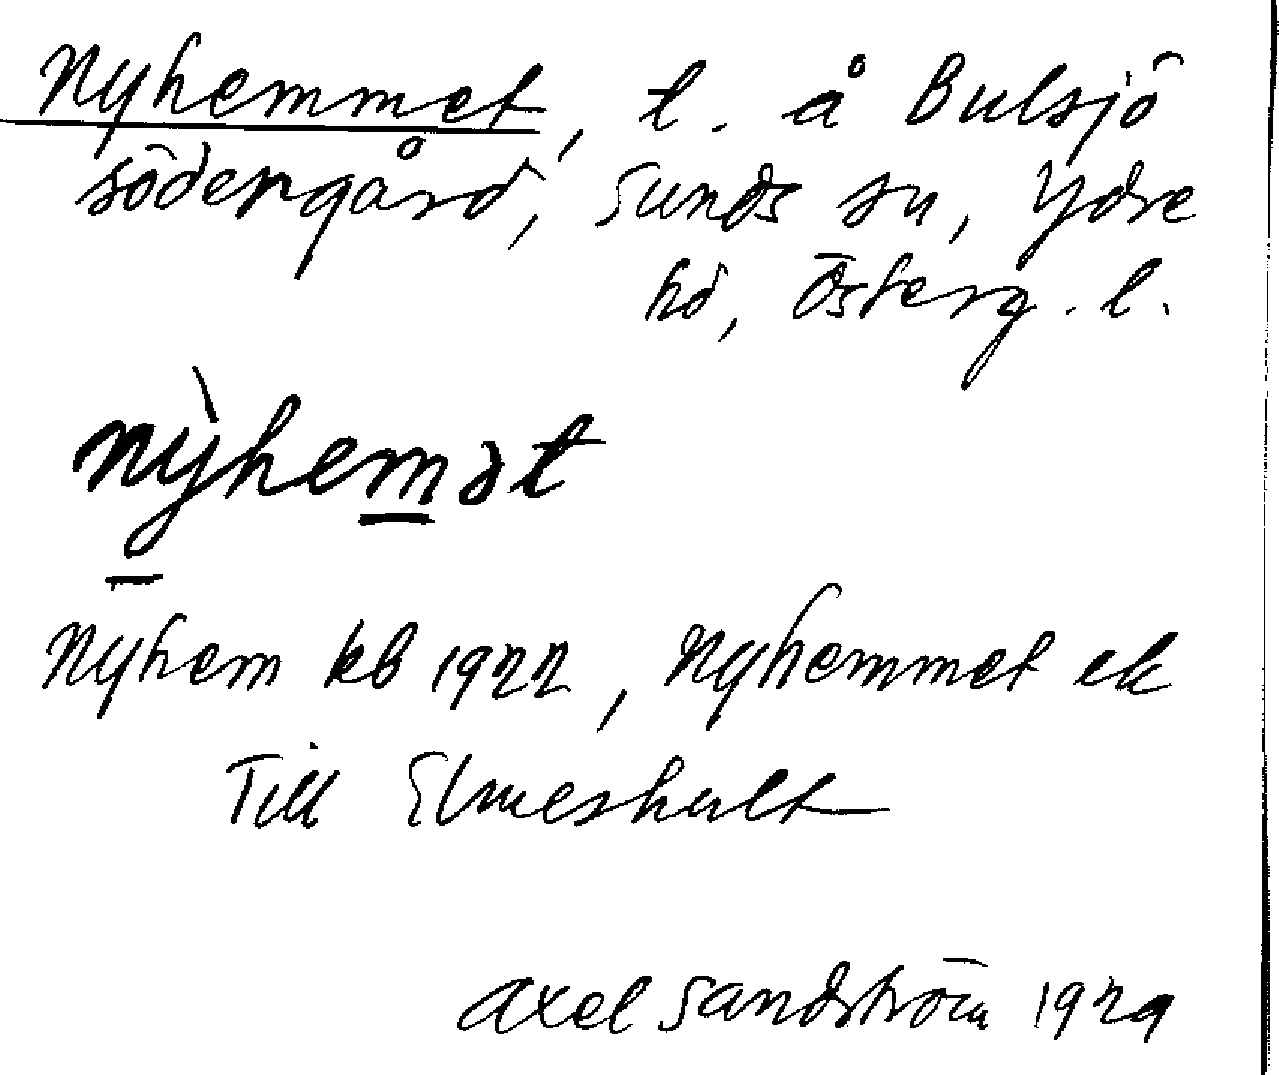 Nyhemmet, t. å Bulsjö
södergård, Sunds sn, Ydre
hd, Österg. l.
nỳhemət
Nyhem kb 1922, Nyhemmet ek
Till Elmeshult
Axel Sandström 1929